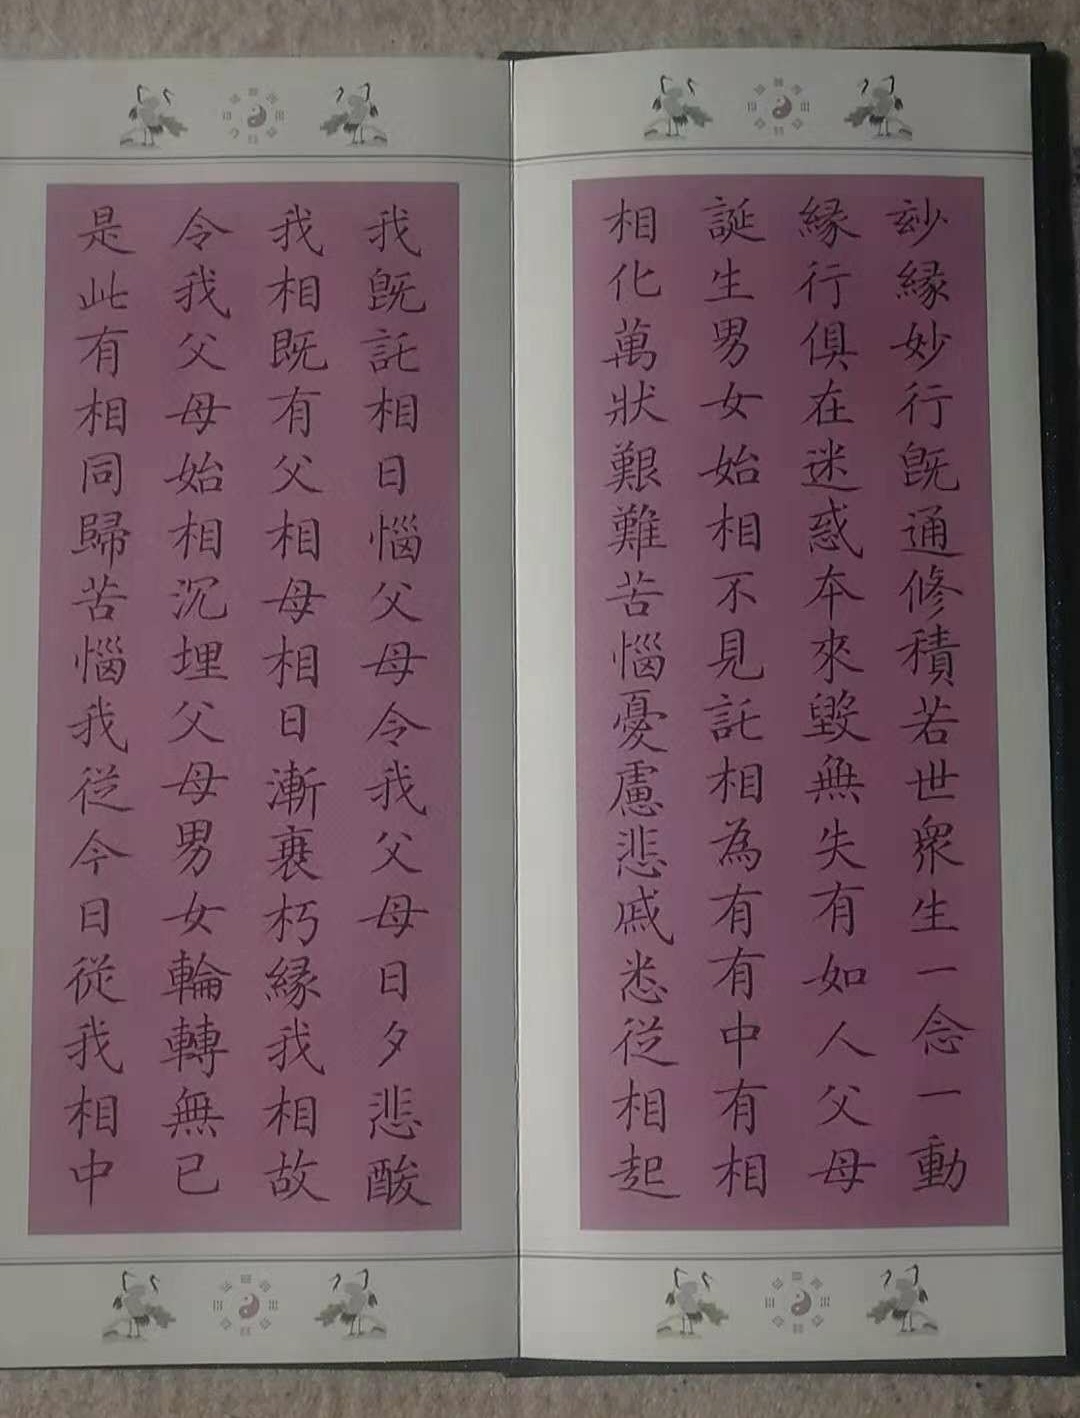 玅縁妙行旣通修積若世衆生一念一動
縁行俱在迷惑本來毀無失有如人父母
誕生男女始相不見託相為有有中有相
相化萬狀艱難苦惱憂慮悲戚悉從相起
我旣託相日惱父母令我父母日夕悲酸
我相既有父相母相日漸衰朽縁我相故
令我父母始相沉埋父母男女輪轉無已
是此有相同歸苦惱我從今日從我相中